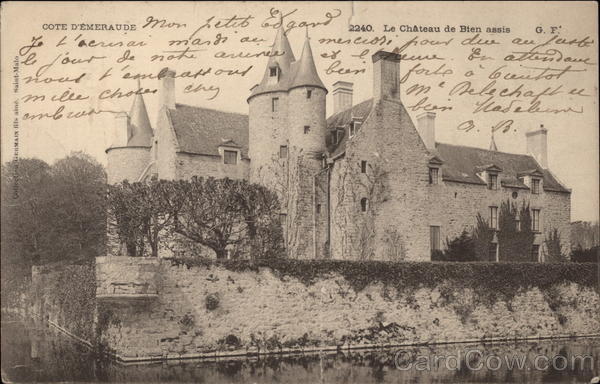 COTE D'ÉMERAUDE
2240. Le Château de Bien assis G. F.
Mon petit Edgard
Je t'écrirai mardi ou mercredi pour dire au juste
le jour de notre heure En attendant
nous t'embrassons bien forts à bientôt
mille choses chez Me
bien Madeleine
A. B.
Collection GERMAIN fils aîné, Saint-Malo
CardCow.com